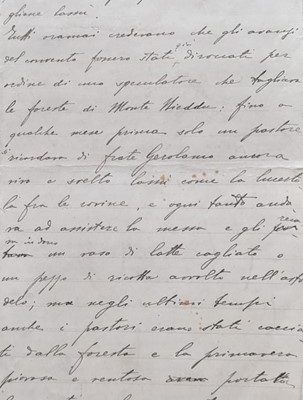 glione lassù.
Tutti oramai credevano che gli avanzi
del convento fossero stati già diroccati per
ordine di uno speculatore che tagliava
le foreste di Monte Nieddu; fino a
qualche mese prima solo un pastore
si ricordava di frate Gerolamo ancora
vivo e svelto lassù come la lucerto
la fra le rovine, e ogni tanto anda
va ad assistere la messa e gli reca
va in dono un vaso di latte cagliato o
un pezzo di ricotta avvolto nell'asfo
delo; ma negli ultimi tempi
anche i pastori erano stati caccia
ti dalla foresta e la primavera
piovosa e ventosa portato